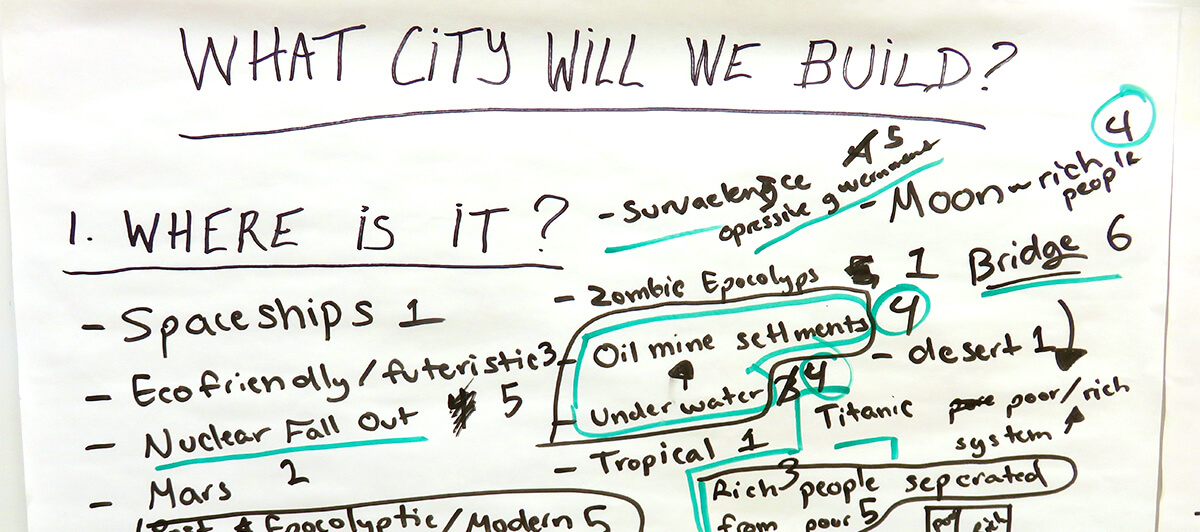 WHAT CiTY WiLL WE BUiLD?
4
1. WHERE iS iT?
- Spaceships 1
- Ecofriendly/futeristic 3
- Nuclear Fall Out 5
- Mars 2
Epocolyptic/Modern 5
- Survaelence 5
opressive government
- Moon ~ rich
people
- Zombie Epocolyps 1
- Oil mine setlments 4
- Under water 4
- Tropical 1
Bridge 6
- desert 1
Titanic poor/rich
system
Rich 3 people seperated
from poor 5